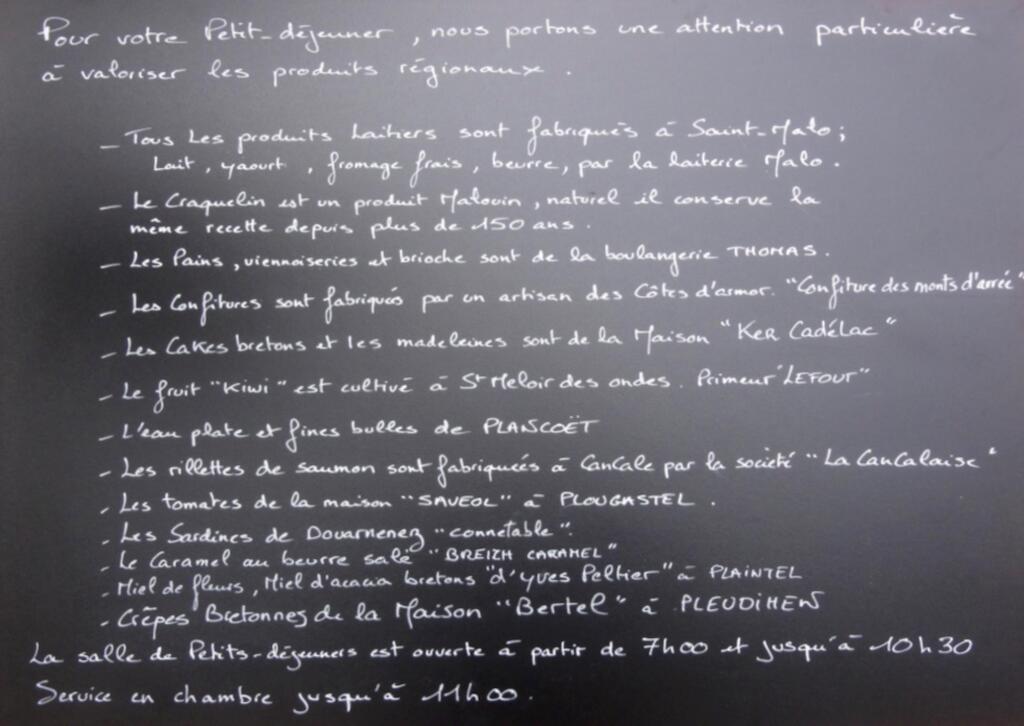 Pour votre Petit-déjeuner, nous portons une attention particulière
à valoriser les produits régionaux.
- Tous les produits laitiers sont fabriqués à Saint-Malo ;
Lait, yaourt, fromage frais, beurre, par la laiterie Malo.
- Le Craquelin est un produit Malouin, naturel il conserve la
même recette depuis plus de 150 ans.
- Les Pains, viennoiseries et brioche sont de la boulangerie THOMAS.
- Les Confitures sont fabriqués par un artisan des Côtes d'armor. "Confiture des monts d'arrée"
- Les Cakes bretons et les madeleines sont de la Maison "Ker Cadélac"
- Le fruit "Kiwi" est cultivé à St Meloir des ondes. Primeur "LEFOUR"
- L'eau plate et fines bulles de PLANCOËT
- Les rillettes de saumon sont fabriquées à Cancale par la société "La Cancalaise"
- Les tomates de la maison "SAVEOL" à PLOUGASTEL.
- Les Sardines de Douarnenez "connetable".
- Le Caramel au beurre salé "BREIZH CARAMEL"
- Miel de fleurs, Miel d'acacia bretons "d'Yves Peltier" à PLAINTEL
- Crêpes Bretonnes de la Maison "Bertel" à PLEUDIHEN
La salle de Petits-déjeuners est ouverte à partir de 7h00 et jusqu'à 10h30
Service en chambre jusqu'à 11h00.